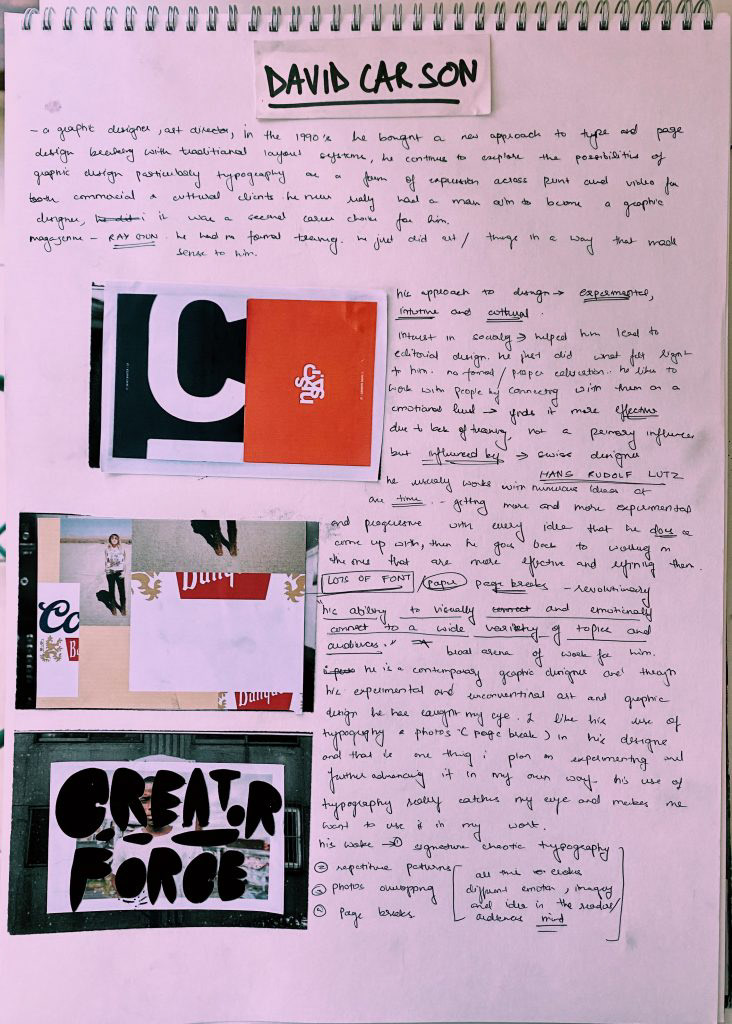 DAVID CARSON
- a graphic designer, art director, in the 1990's he bought a new approach to type and page
design breaking with traditional layout systems, he continues to explore the possibilities of
graphic design particularly typography as a form of expression across print and video for
both commercial & cultural clients. he never really had a main aim to become a graphic
designer, it was a second career choice for him.
magazine - RAY GUN. he had no formal training. he just did art / things in a way that made
sense to him.
his approach to design → experimental,
intuitive and cultural.
Interest in sociology → helped him lead to
editorial design. he just did what felt right
to him. no formal / proper education. he likes to
work with people by connecting with them on a
emotional level → finds it more effective
due to lack of training, not a primary influencer
but influenced by → swiss designer
HANS RUDOLF LUTZ
he usually works with numerous ideas at
one time.. getting more and more experimental
and progressive with every idea that he does
come up with, then he goes back to working on
the ones that are more effective and refining them.
LOTS OF FONT / paper page breaks - revolutionary
"his ability to visually and emotionally
connect to a wide variety of topics and
audiences."
broad arena of work for him.
he is a contemporary graphic designer and through
his experimental and unconventional art and graphic
design he has caught my eye. I like his use of
typography & photos (page break) in his designs
and that is one thing i plan on experimenting and
further advancing it in my own way. his use of
typography really catches my eye and makes me
want to use it in my work.
his works → ① signature chaotic typography
② repetitive patterns
③ photos overlapping
④ page breaks
all this evokes
different emotion, imagery
and idea in the readers/
audiences mind
Co
Ba
Banque
Banque
CREATOR
FORCE